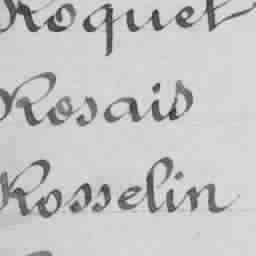 Roquet
Rosais
Rosselin